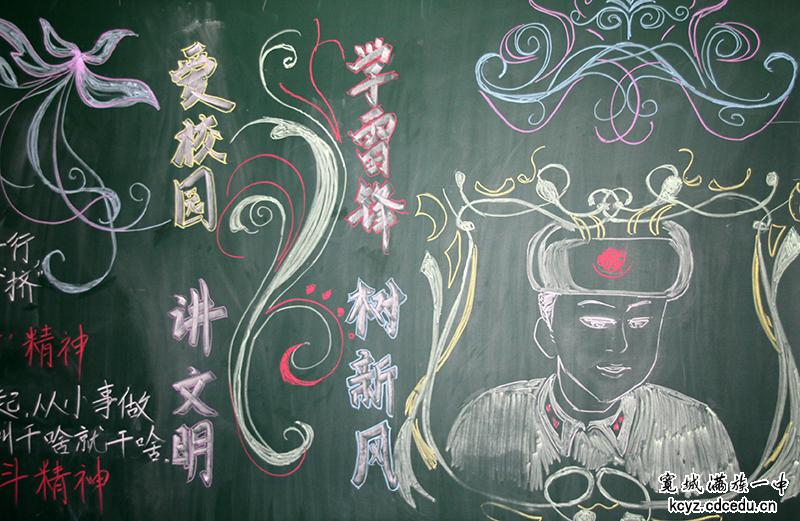 学雷锋 树新风
爱校园 讲文明
行
挤”
精神
起,从小事做
叫干啥就干啥.
斗精神
宽城满族一中
kcyz.cdcedu.cn